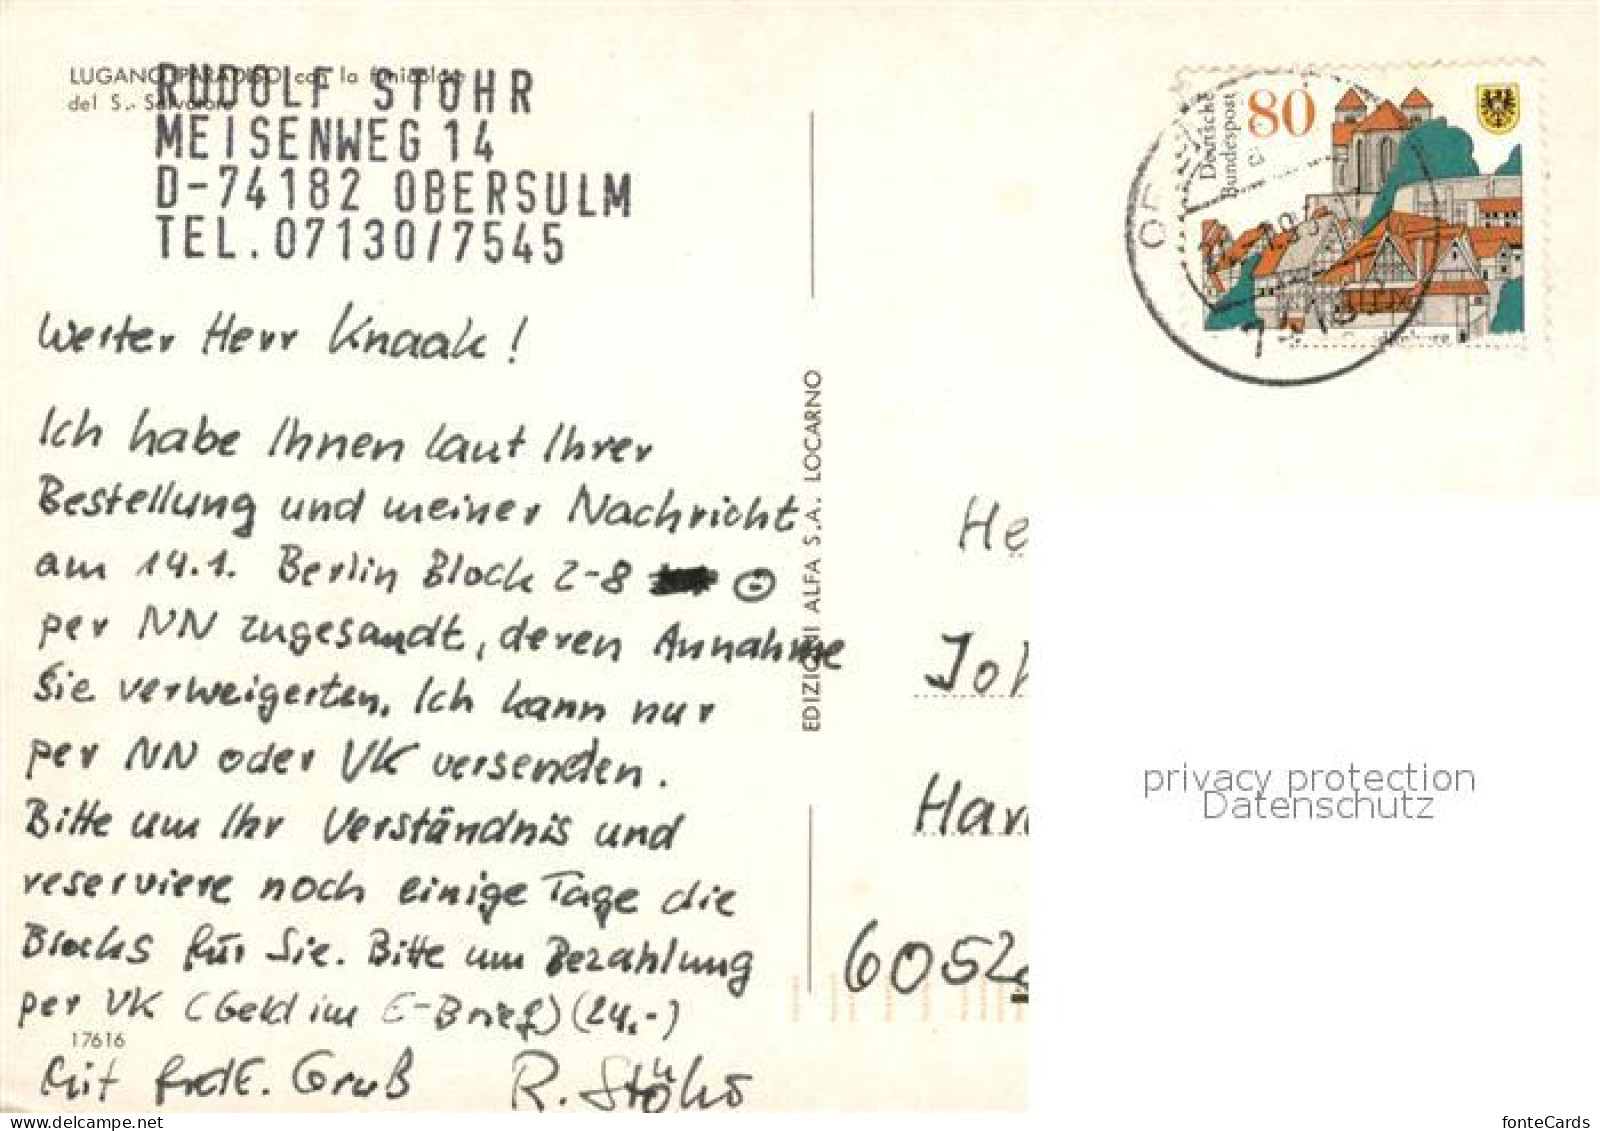 LUGANO PARADISO con la funicolare
del S. Salvatore
RUDOLF STÖHR
MEISENWEG 14
D-74182 OBERSULM
TEL. 07130/7545
Werter Herr Knaak!
Ich habe Ihnen laut Ihrer
Bestellung und meiner Nachricht
am 14.1. Berlin Block 2-8
per NN zugesandt, deren Annahme
Sie verweigerten. Ich kann nur
per NN oder VK versenden.
Bitte um Ihr Verständnis und
reserviere noch einige Tage die
Blocks für Sie. Bitte um Bezahlung
per VK (Geld im E-Brief) (24,-)
17616
Mit frdl. Gruß R. Stöhr
EDIZIONI ALFA S.A. LOCARNO
Deutsche
Bundespost
80
He
Joh
Har
6052
privacy protection
Datenschutz
fonteCards